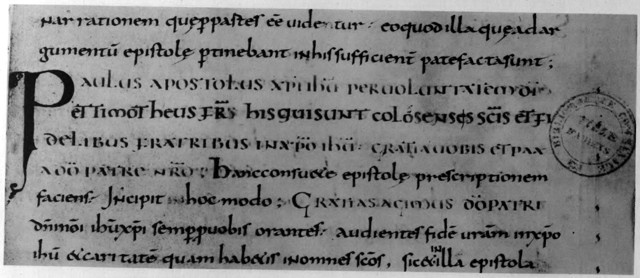 nar rationem quę p̱rpastes eē videntur· eo quod illa quę ad ar
gumentū epistolę p̱tinebant in his sufficient̄ patefacta sunt;
PAULUS APOSTOLUS XPI IHU PER VOLUNTATEM DI
ET TIMOTHEUS FRS HIS QUI SUNT COLOSENSES SCIS ET FI
DELIBUS FRATRIBUS IN XPO IHU· GRATIA UOBIS ET PAX
A DO PATRE NRO· Hanc consuetę epistolę prescriptionem
faciens· Incipit in hoc modo; GRATIAS AGIMUS DO PATRI
dni nri ihu xpi semper p uobis orantes· audientes fidē uram in xpo
ihu et caritatem quam habetis in omnes scos, sic et in illa epistola